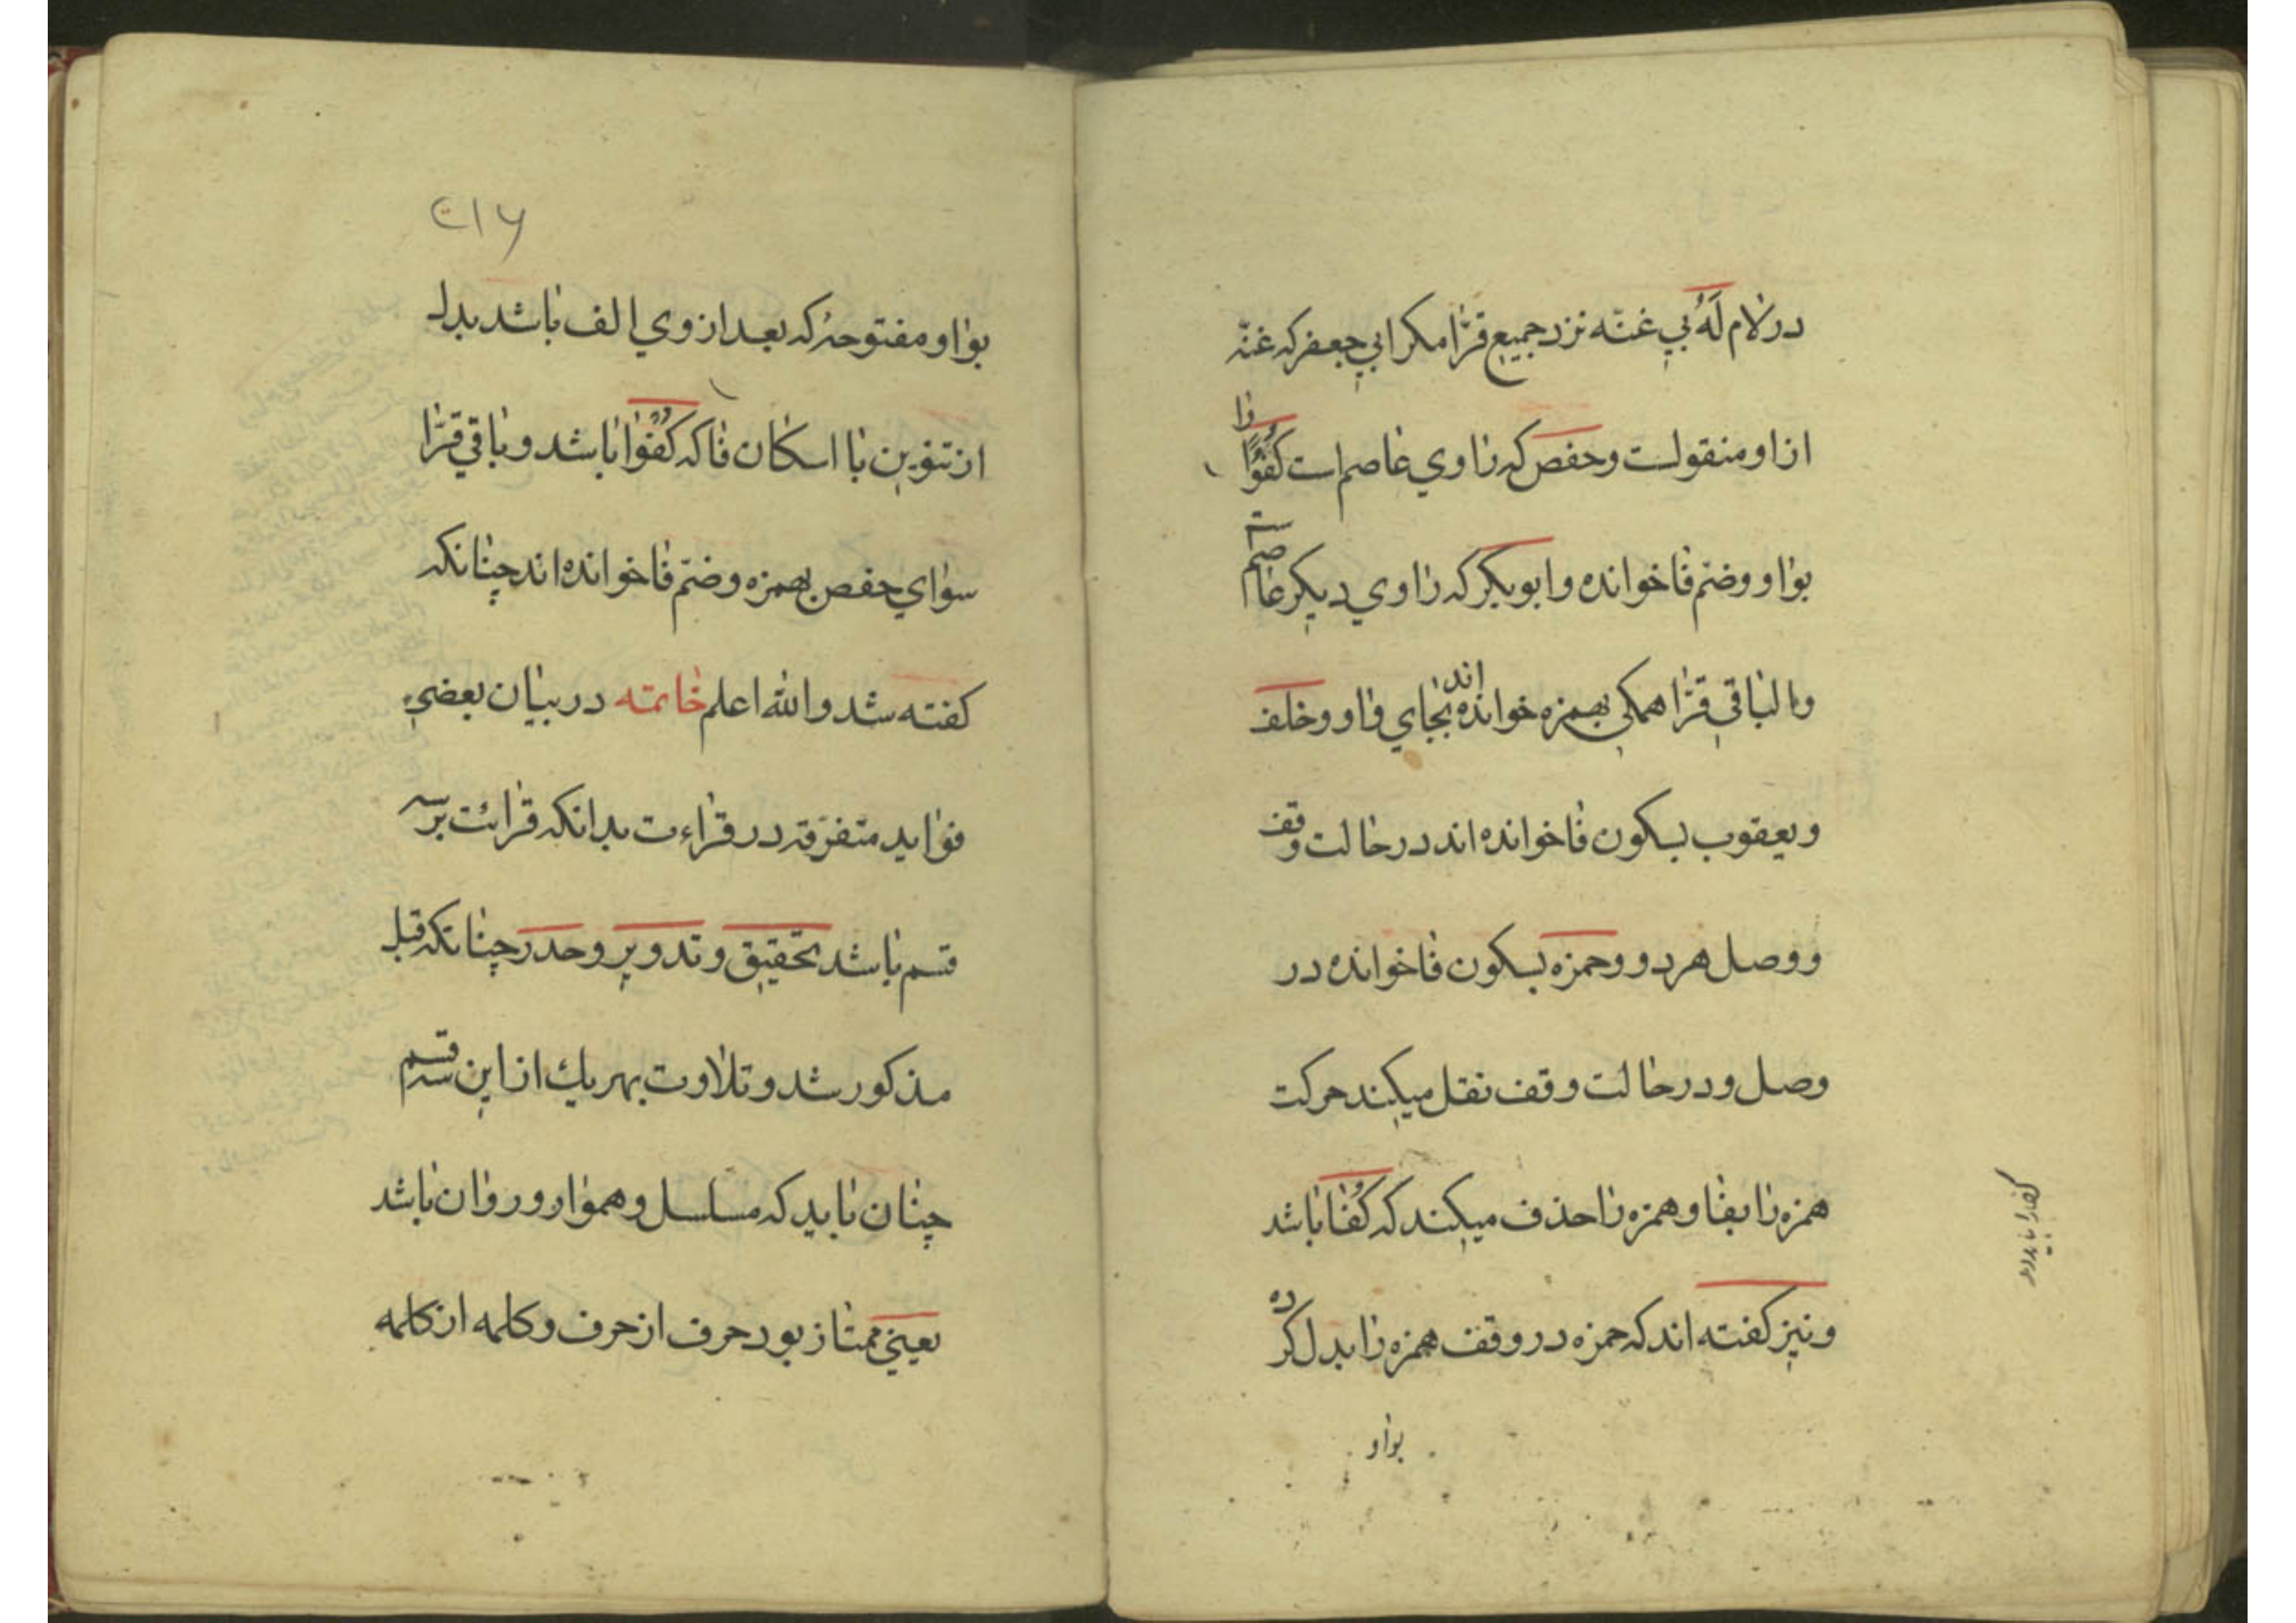 در لام لَهُ بي غنّه نزد جميع قرّا مكر ابي جعفر كه غنّه
از او منقولست و حفص كه راوي عاصم است كُفُوًا را
بواو و ضمّ فا خوانده و ابو بكر كه راوي ديكر عاصم است
و الباقي قرّا همكي بهمزه خوانده اند بجاي واو و خلف
و يعقوب بسكون فا خوانده اند در حالت وقف
و وصل هر دو و حمزه بسكون فا خوانده در
وصل و در حالت وقف نقل ميكند حركت
همزه را بفا و همزه را حذف ميكند كه كُفَا باشد
و نيز كفته اند كه حمزه در وقف همزه را بدل كرده
بواو
۲۱۶
بواو مفتوحه كه بعد از وي الف باشد بدل
از تنوين با اسكان فا كه كُفْوَا باشد و باقي قرّا
سواي حفص بهمزه و ضمّ فا خوانده اند چنانكه
كفته شد و الله اعلم خاتمه در بيان بعضي
فوايد متفرّقه در قراءت بدانكه قرائت بر سه
قسم باشد تحقيق و تدوير و حدر چنانكه قبل
مذكور شد و تلاوت بهر يك از اين سه قسم
چنان بايد كه مسلسل و هموار و روان باشد
يعني ممتاز بود حرف از حرف و كلمه از كلمه